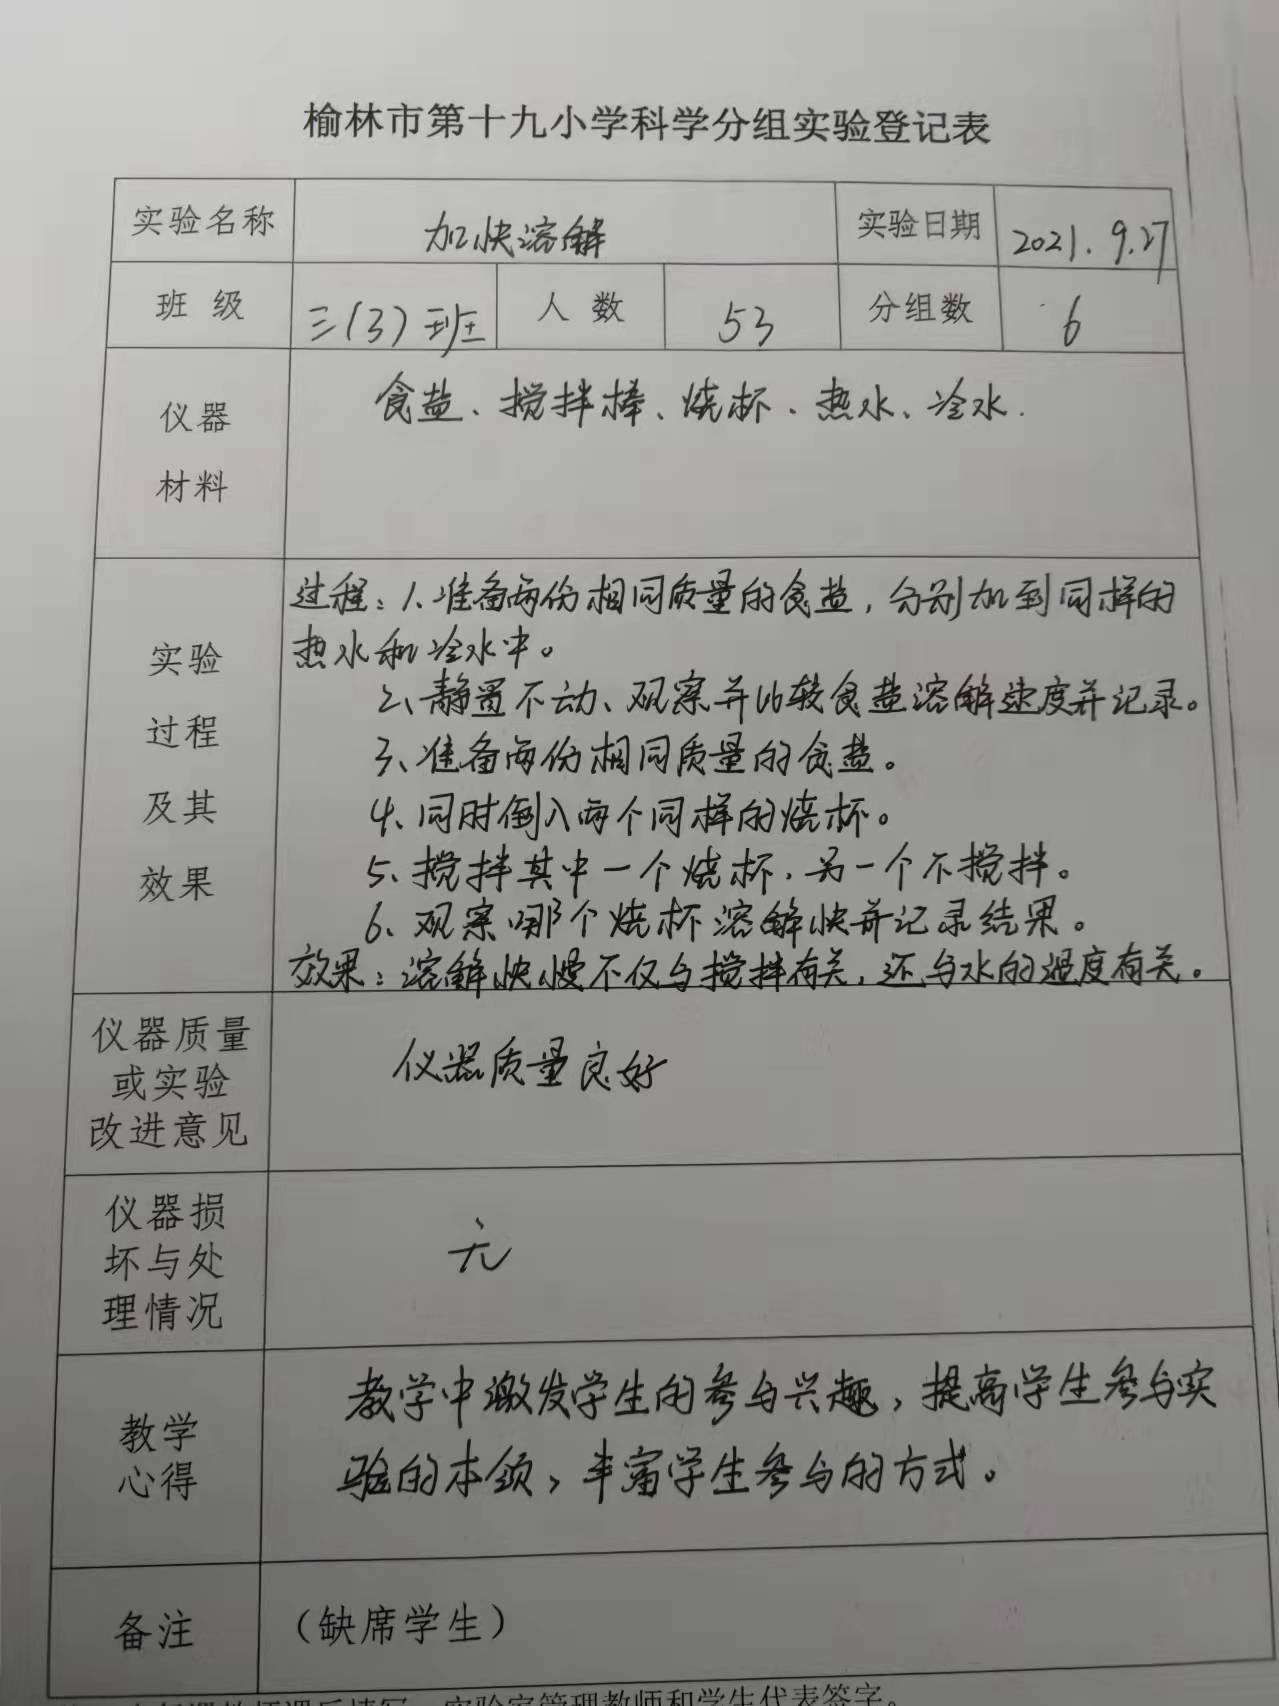 榆林市第十九小学科学分组实验登记表
实验名称 加快溶解 实验日期 2021.9.27
班 级 三(3)班 人 数 53 分组数 6
仪器
材料
食盐、搅拌棒、烧杯、热水、冷水.
实验
过程
及其
效果
过程:1、准备两份相同质量的食盐,分别加到同样的
热水和冷水中。
2、静置不动、观察并比较食盐溶解速度并记录。
3、准备两份相同质量的食盐。
4、同时倒入两个同样的烧杯。
5、搅拌其中一个烧杯,另一个不搅拌。
6、观察哪个烧杯溶解快并记录结果。
效果:溶解快慢不仅与搅拌有关,还与水的温度有关。
仪器质量
或实验
改进意见
仪器质量良好
仪器损
坏与处
理情况
无
教学
心得
教学中激发学生的参与兴趣,提高学生参与实
验的本领,丰富学生参与的方式。
备注 (缺席学生)
实验室管理教师和学生代表签字。